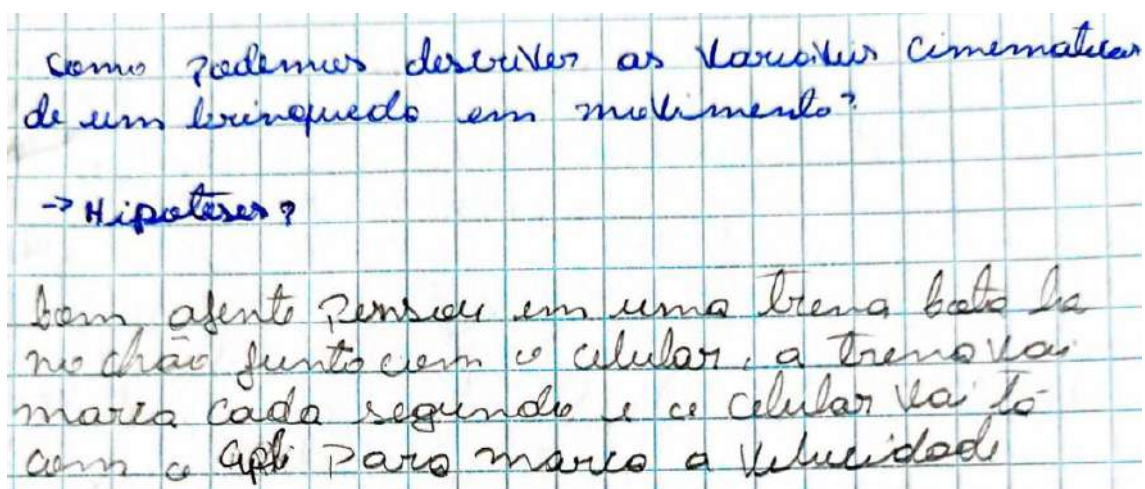 como podemos descriver as variaveis cinematicas
de um brinquedo em movimento?
-> Hipoteses?
bom agente pensou em uma trena bota la
no chão junto com o celular, a trena vai
marca cada segundo e o celular vai tá
com o apli para marca a velucidade